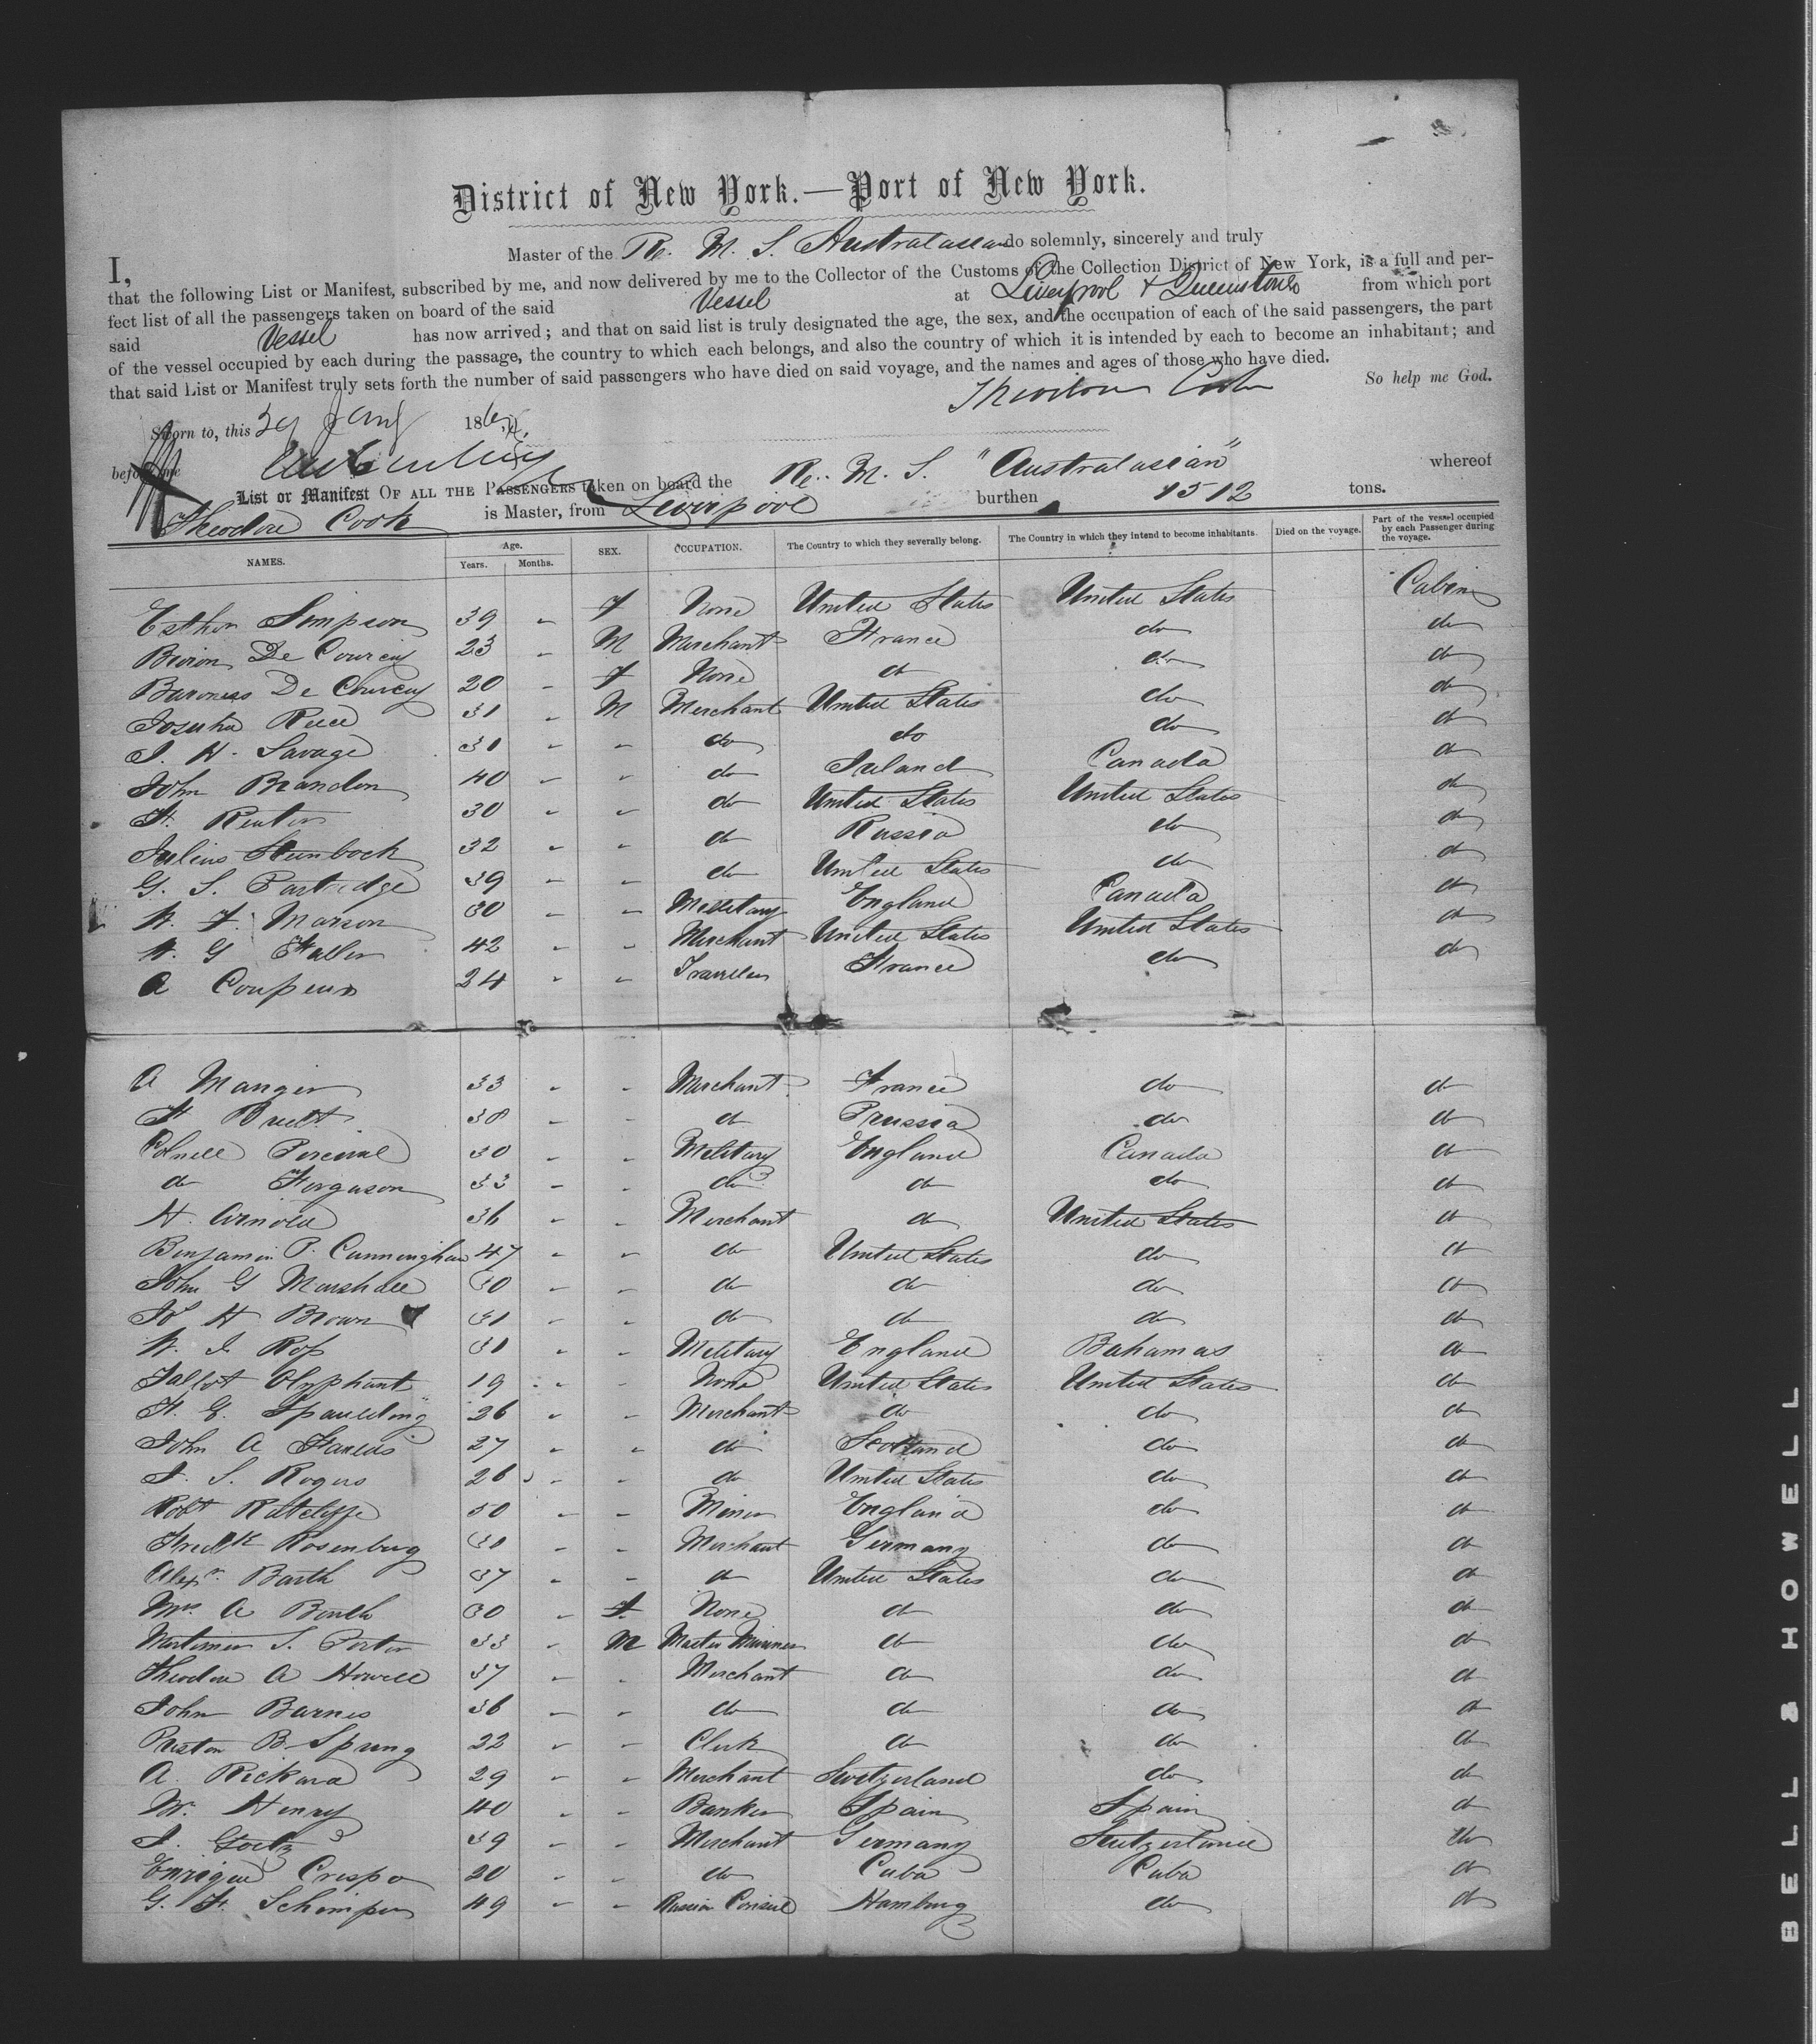 District of New York.—Port of New York.
I, Master of the R. M. S. Australasian do solemnly, sincerely and truly
that the following List or Manifest, subscribed by me, and now delivered by me to the Collector of the Customs of the Collection District of New York, is a full and per-
fect list of all the passengers taken on board of the said Vessel at Liverpool & Queenstown from which port
said Vessel has now arrived; and that on said list is truly designated the age, the sex, and the occupation of each of the said passengers, the part
of the vessel occupied by each during the passage, the country to which each belongs, and also the country of which it is intended by each to become an inhabitant; and
that said List or Manifest truly sets forth the number of said passengers who have died on said voyage, and the names and ages of those who have died.
So help me God.
Theodore Cook
Sworn to, this Jany 186
before me
List or Manifest OF ALL THE PASSENGERS taken on board the R. M. S. "Australasian" whereof
Theodore Cook is Master, from Liverpool burthen 1512 tons.
NAMES. Age. Years. Months. SEX. OCCUPATION. The Country to which they severally belong. The Country in which they intend to become inhabitants. Died on the voyage. Part of the vessel occupied by each Passenger during the voyage.
Esther Simpson 39 - F None United States United States Cabin
Baron De Courcy 23 - M Merchant France do do
Baroness De Courcy 20 - F None do do do
Josuha Reece 31 - M Merchant United States do do
J. H. Savage 31 - - do do do do
John Brandon 40 - - do Ireland Canada do
30 - - do United States United States do
Julius Steinbock 32 - - do Russia do do
G. S. Partridge 39 - - do United States do do
W. F. Marson 30 - - Military England Canada do
W. G 42 - - Merchant United States United States do
A 24 - - Traveller France do do
A Mangin 33 - - Merchant France do do
38 - - do Prussia do do
Colnell Percival 30 - - Military England Canada do
do Ferguson 33 - - do do do do
H. Arnold 36 - - Merchant do United States do
Benjamin P. Cunningham 47 - - do United States do do
John G Marshall 30 - - do do do do
H Brown 31 - - do do do do
W. J. Ross 31 - - Military England Bahamas do
Talbot Olyphant 19 - - None United States United States do
H. G. Spaulding 26 - - Merchant do do do
John A 27 - - do Scotland do do
J. S. Rogers 26 - - do United States do do
Robt Ratcliffe 50 - - Miner England do do
Fredk Rosenburg 30 - - Merchant Germany do do
Alexr. Barth 37 - - do United States do do
Mrs A Barth 30 - F. None do do do
Mortimer S. Porter 33 - M Master Mariner do do do
Theodore A Howell 37 - - Merchant do do do
John Barnes 36 - - do do do do
Preston B Spring 22 - - Clerk do do do
A. Rickard 29 - - Merchant Switzerland do do
W. Henry 40 - - Banker Spain Spain do
J. Goetz 39 - - Merchant Germany Switzerland do
Enrique Crespo 20 - - do Cuba Cuba do
G. F. Schimper 49 - - Russian Consul Hamburg do do
BELL & HOWELL